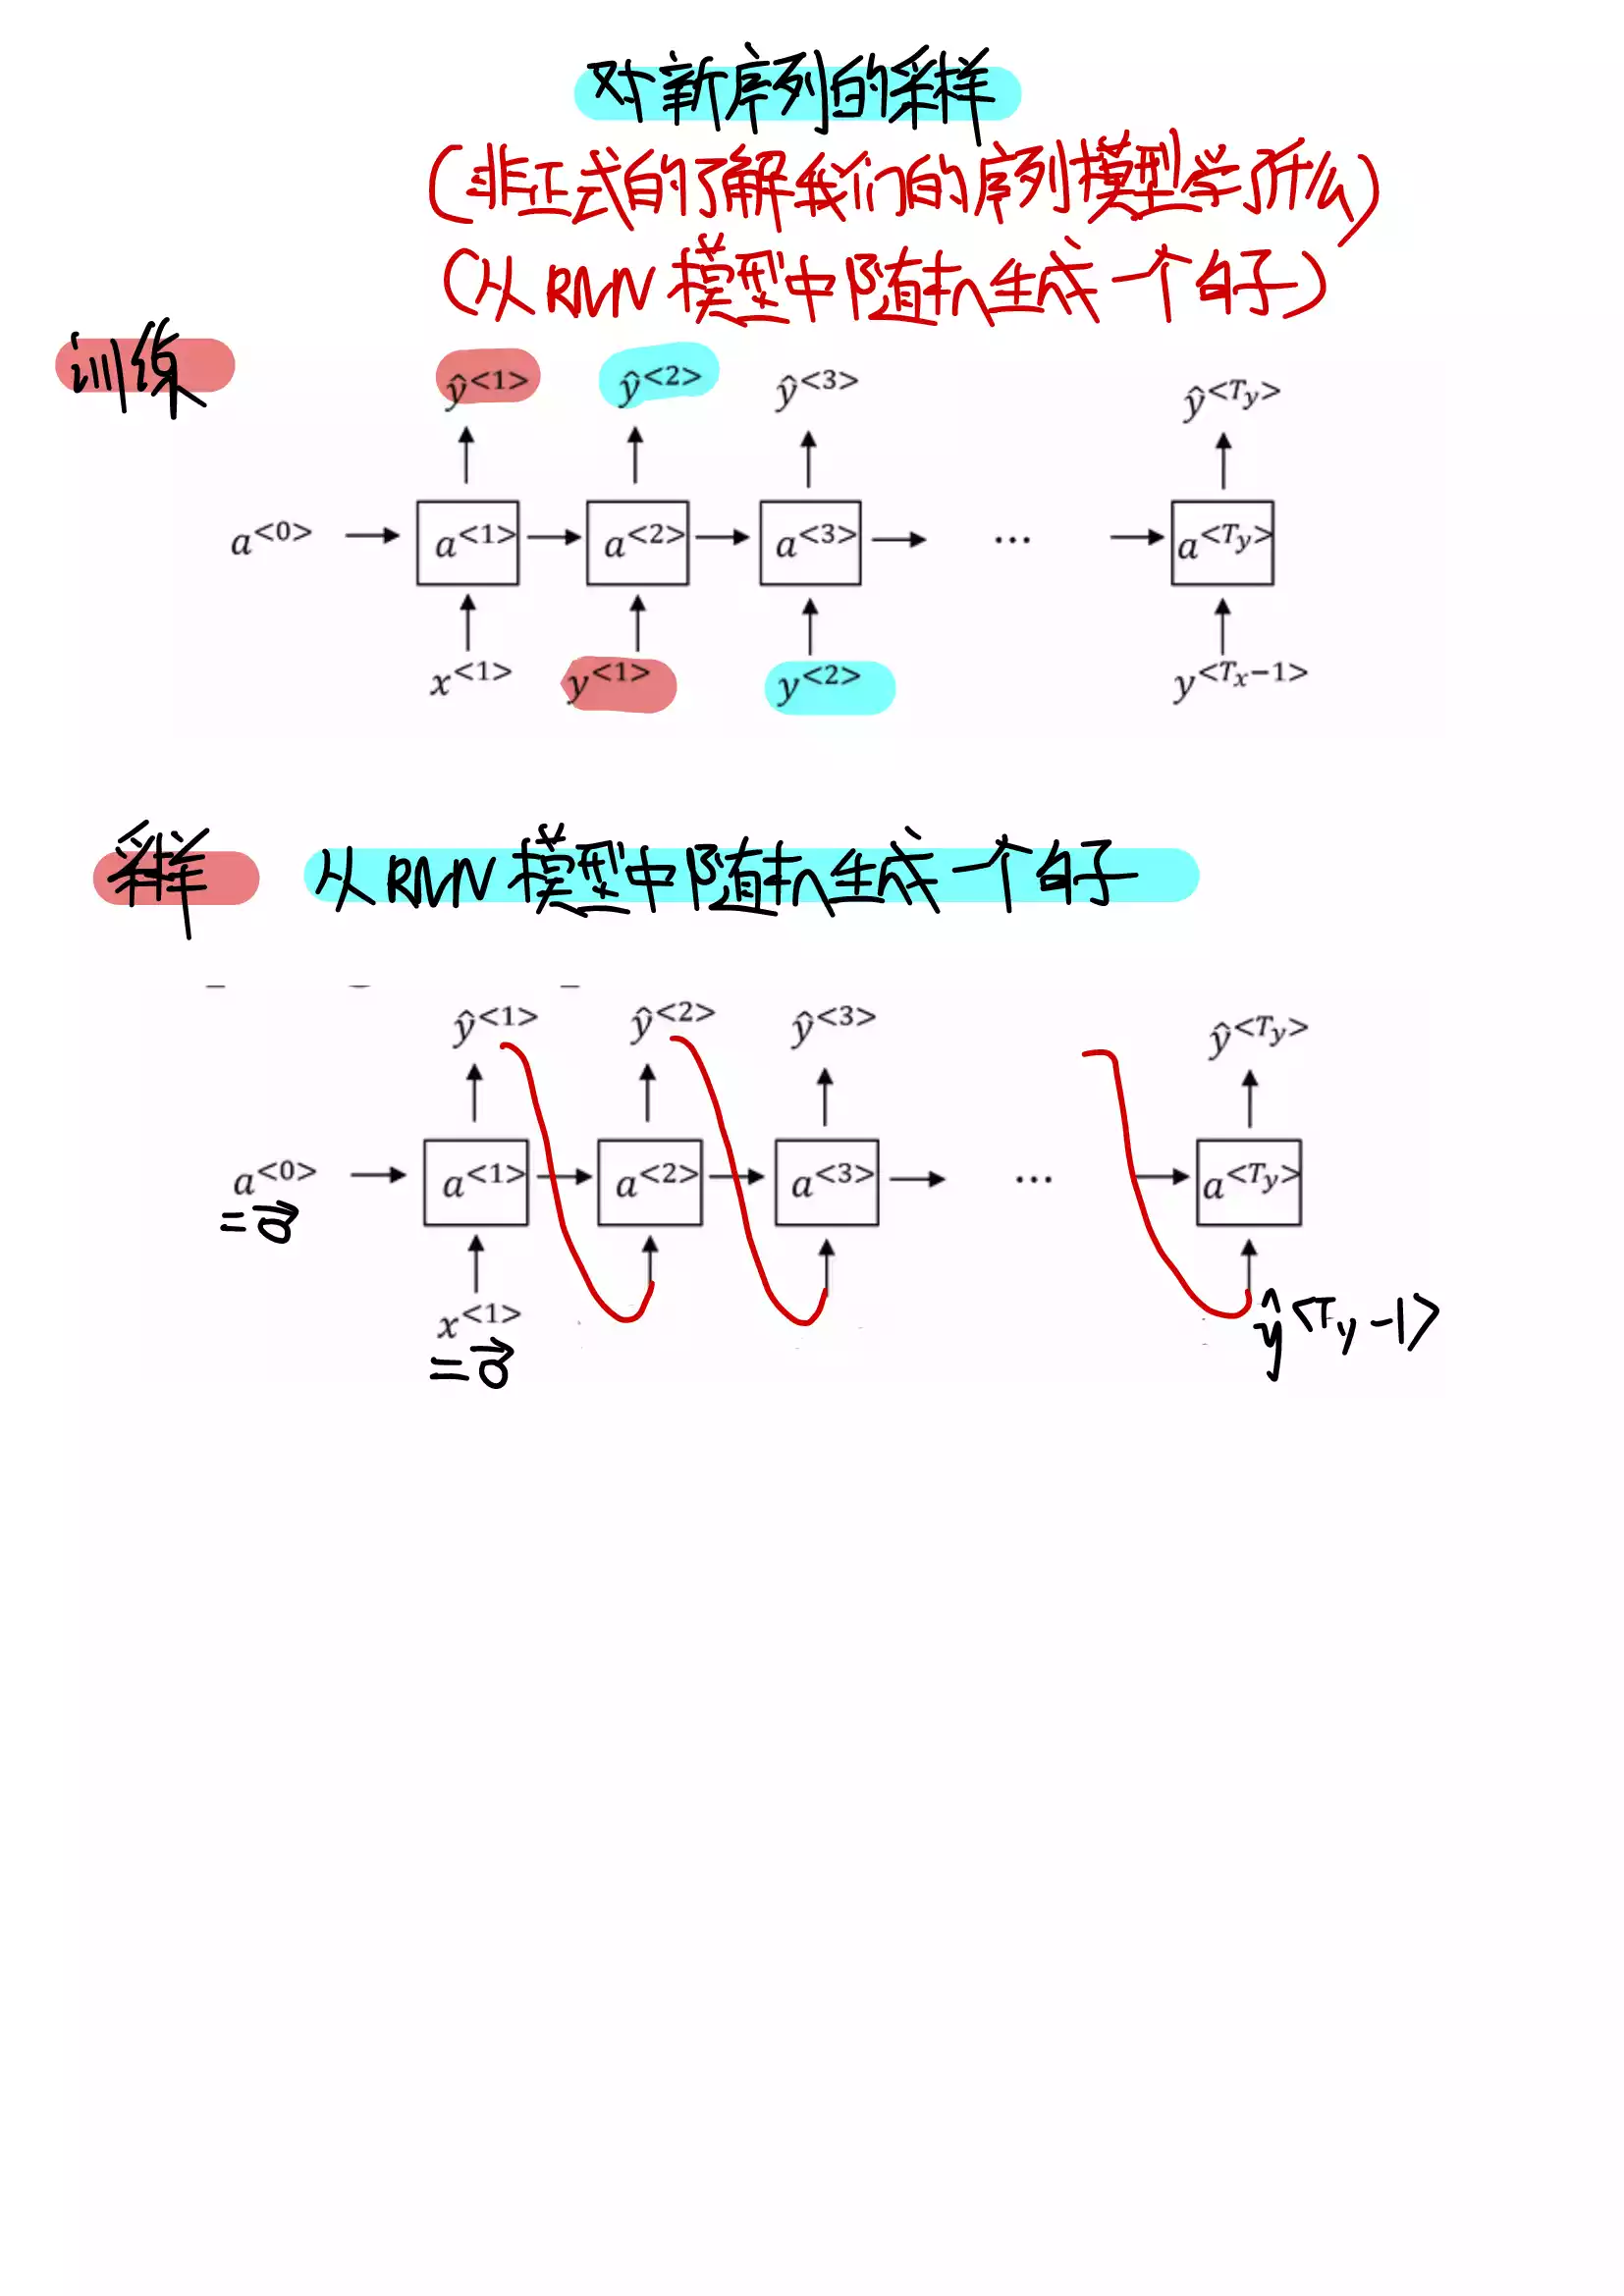 对新序列的采样
(非正式的了解我们的序列模型学了什么)
(从RNN模型中随机生成一个句子)
训练
ŷ<1> ŷ<2> ŷ<3> ŷ<Ty>
a<0> → a<1> → a<2> → a<3> → ⋯ → a<Ty>
x<1> y<1> y<2> y<Tx−1>
采样 从RNN模型中随机生成一个句子
ŷ<1> ŷ<2> ŷ<3> ŷ<Ty>
a<0> → a<1> → a<2> → a<3> → ⋯ → a<Ty>
=0⃗
x<1> ŷ<Ty−1>
=0⃗